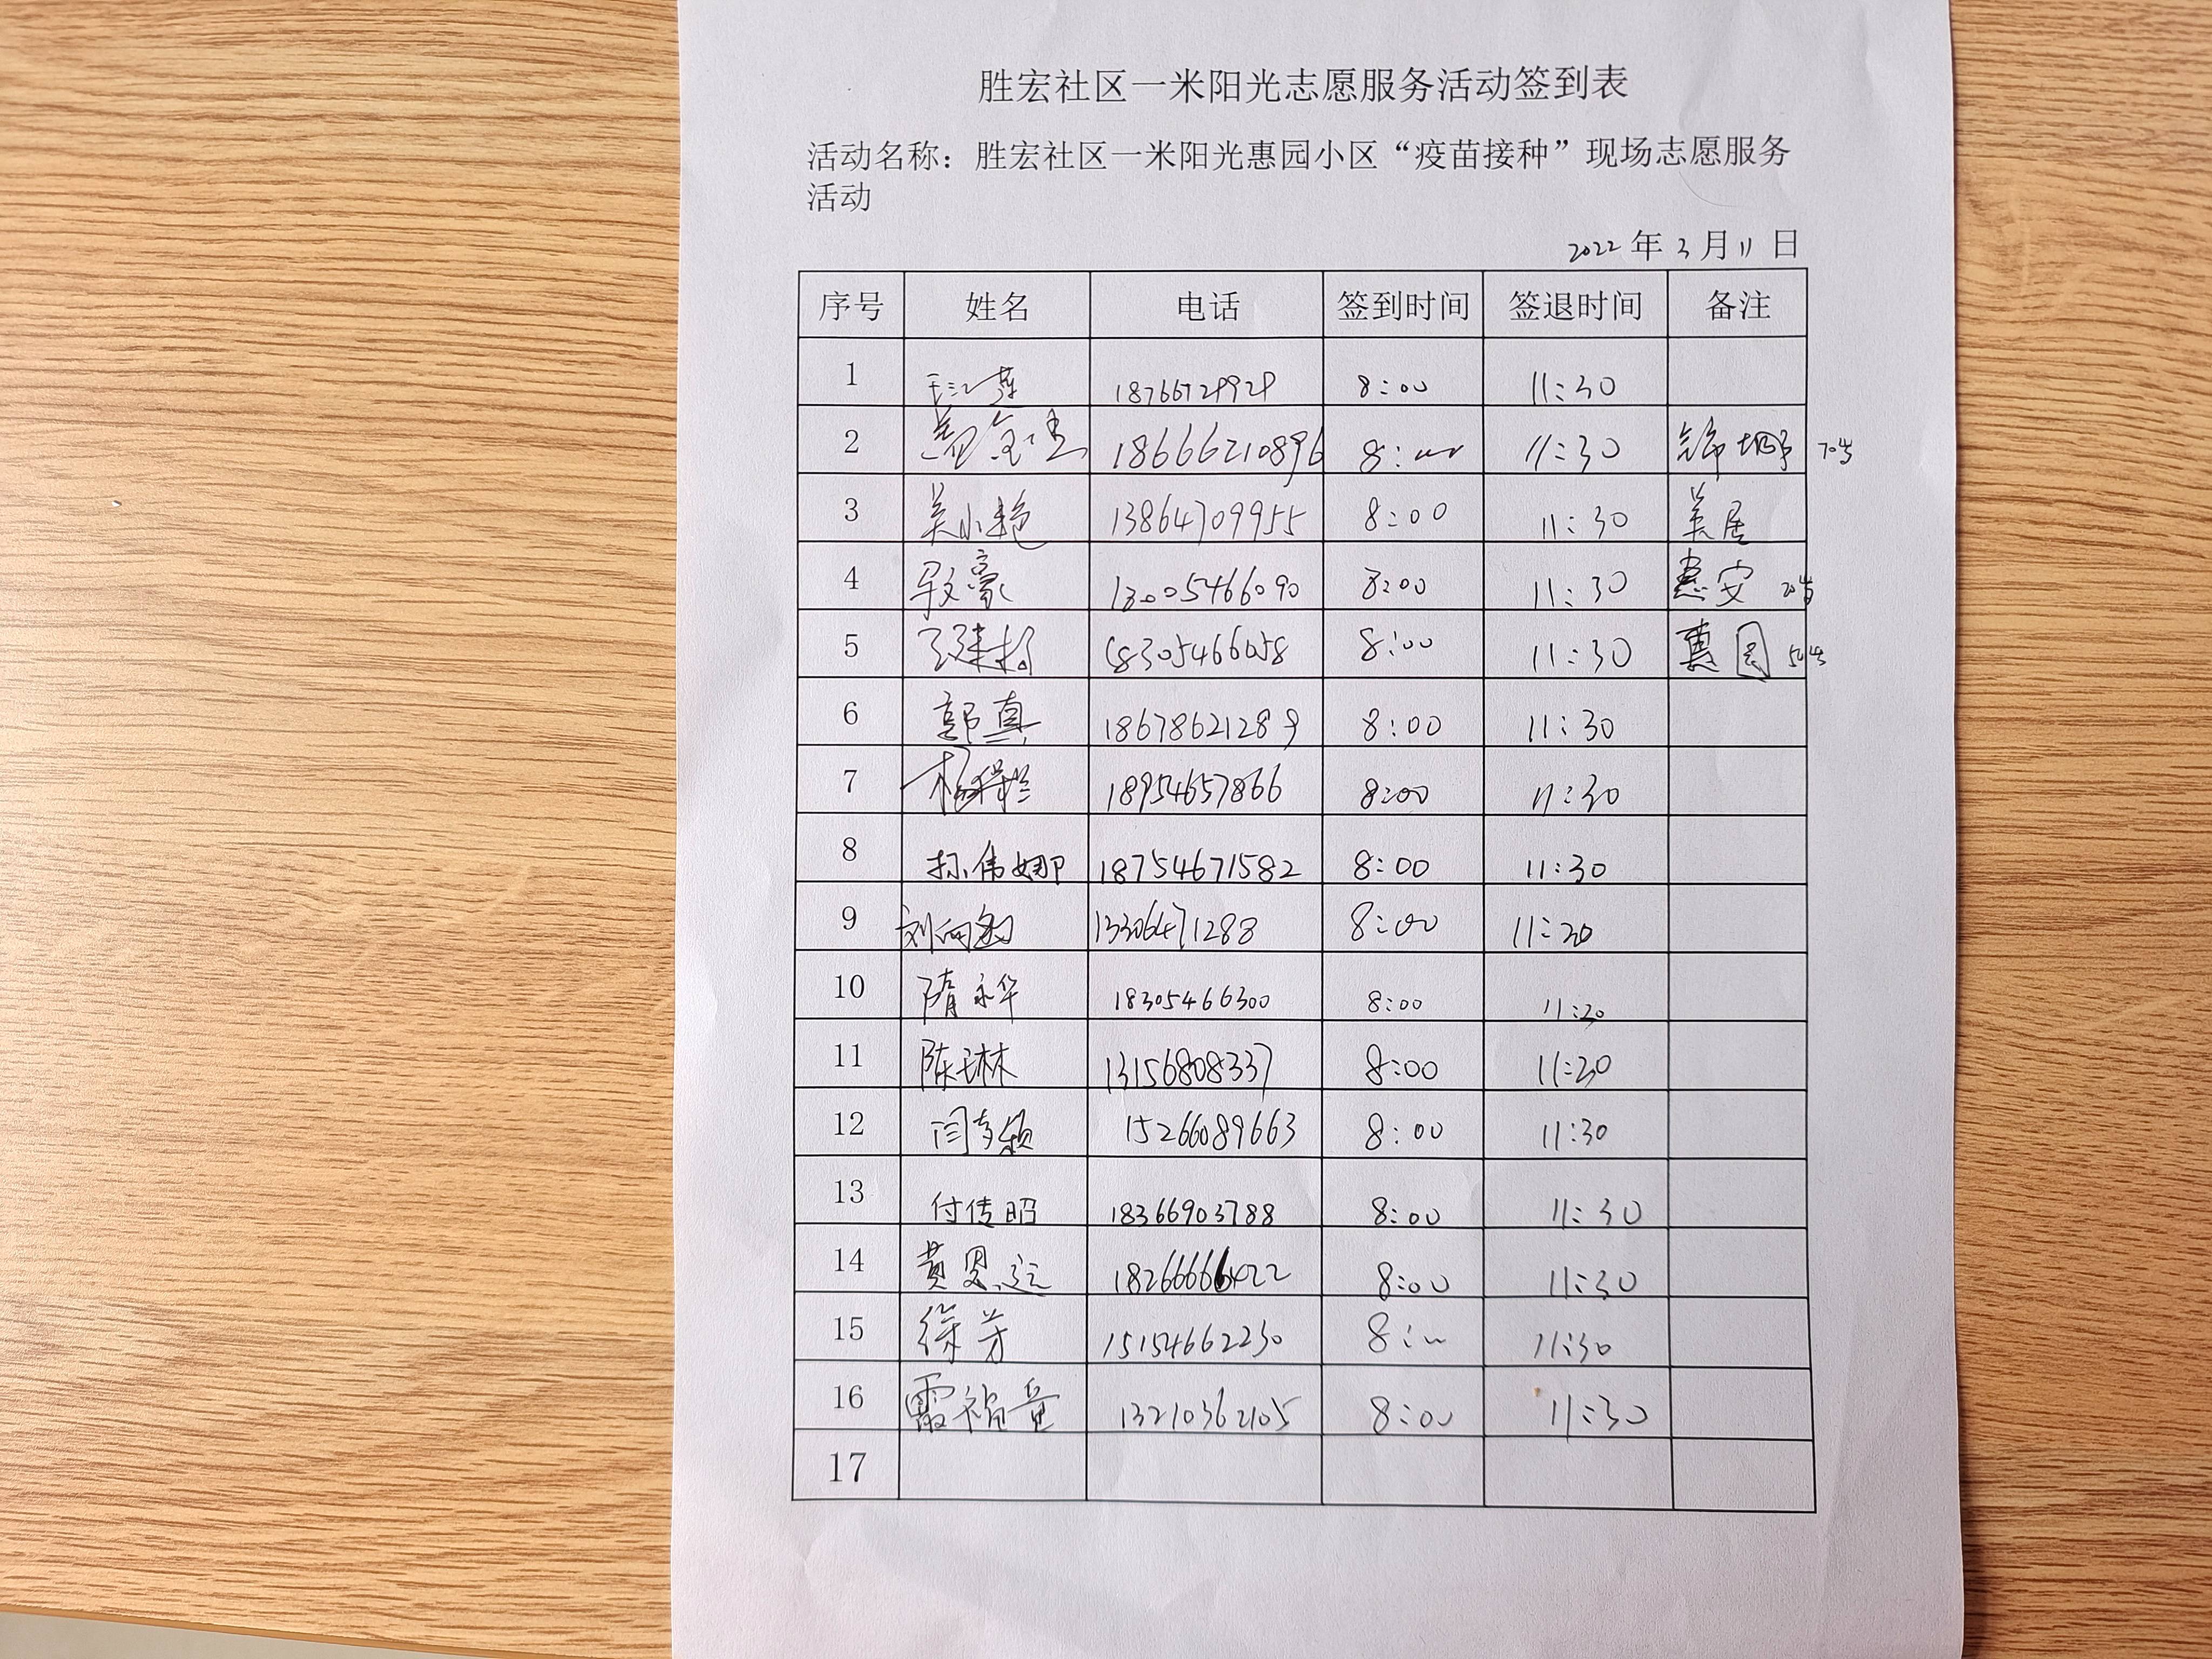 胜宏社区一米阳光志愿服务活动签到表
活动名称：胜宏社区一米阳光惠园小区“疫苗接种”现场志愿服务
活动
2022年3月11日
序号 姓名 电话 签到时间 签退时间 备注
1 8:00 11:30
2 18666210896 8:00 11:30
3 吴小艳 13864709955 8:00 11:30 美居
4 段豪 13005466090 8:00 11:30 惠安
5 18305466058 8:00 11:30 惠园
6 郭真 18678621289 8:00 11:30
7 18954657866 8:00 11:30
8 孙伟娜 18754671582 8:00 11:30
9 13306471288 8:00 11:30
10 隋永华 18305466300 8:00 11:30
11 陈琳 13156808337 8:00 11:30
12 15266089663 8:00 11:30
13 付传昭 18366903788 8:00 11:30
14 黄恩运 18266666422 8:00 11:30
15 徐芳 15154662230 8:00 11:30
16 雷福童 13210362105 8:00 11:30
17